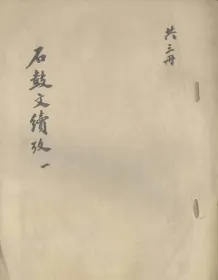 共三册
石鼓文續攷 一